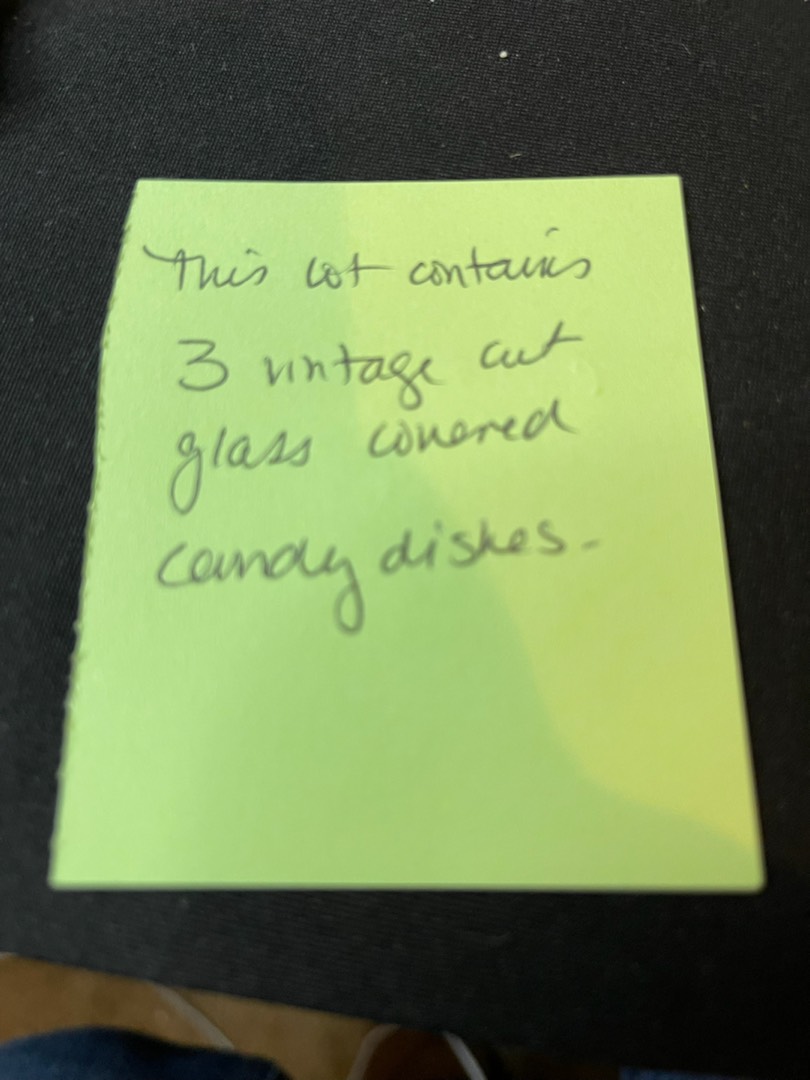 This lot contains
3 vintage cut
glass covered
candy dishes.